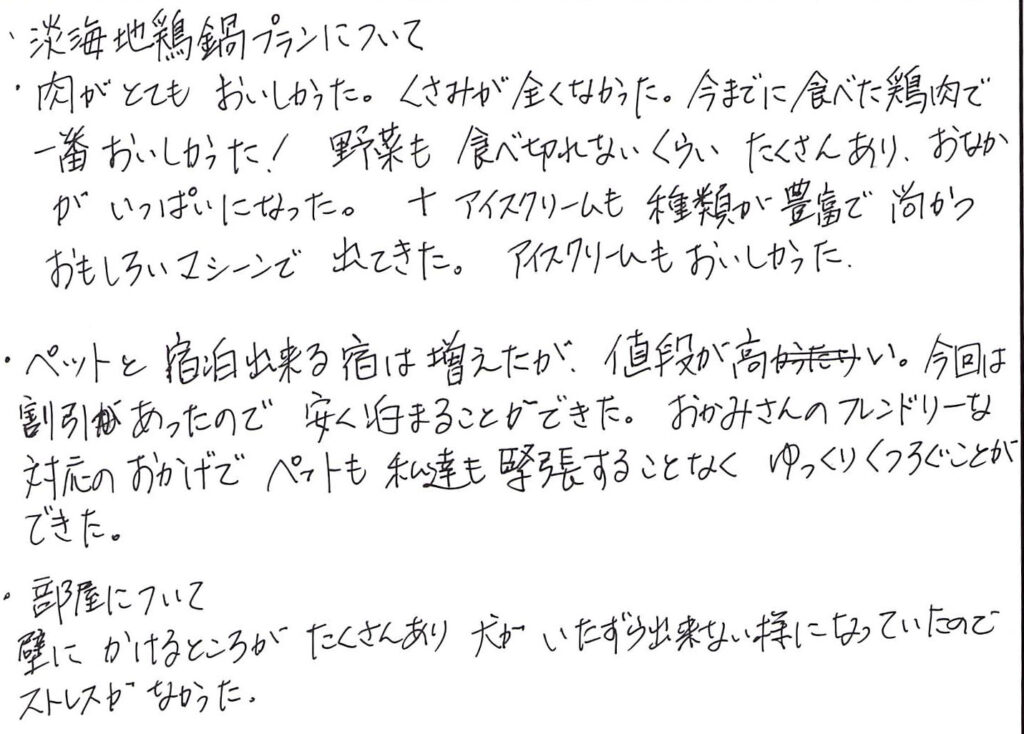 ・淡海地鶏鍋プランについて
・肉がとても おいしかった。くさみが全くなかった。今までに食べた鶏肉で
一番おいしかった! 野菜も 食べ切れないくらい たくさんあり、おなか
が いっぱいになった。 + アイスクリームも 種類が豊富で 尚かつ
おもしろいマシーンで 出てきた。 アイスクリームもおいしかった.
・ペットと 宿泊出来る宿は増えたが、値段が高かったけい。今回は
割引があったので 安く泊まることができた。 おかみさんのフレンドリーな
対応のおかげで ペットも 私達も緊張することなく ゆっくりくつろぐことが
できた。
・部屋について
壁に かけるところが たくさんあり 犬が いたずら出来ない様になっていたので
ストレスがなかった.